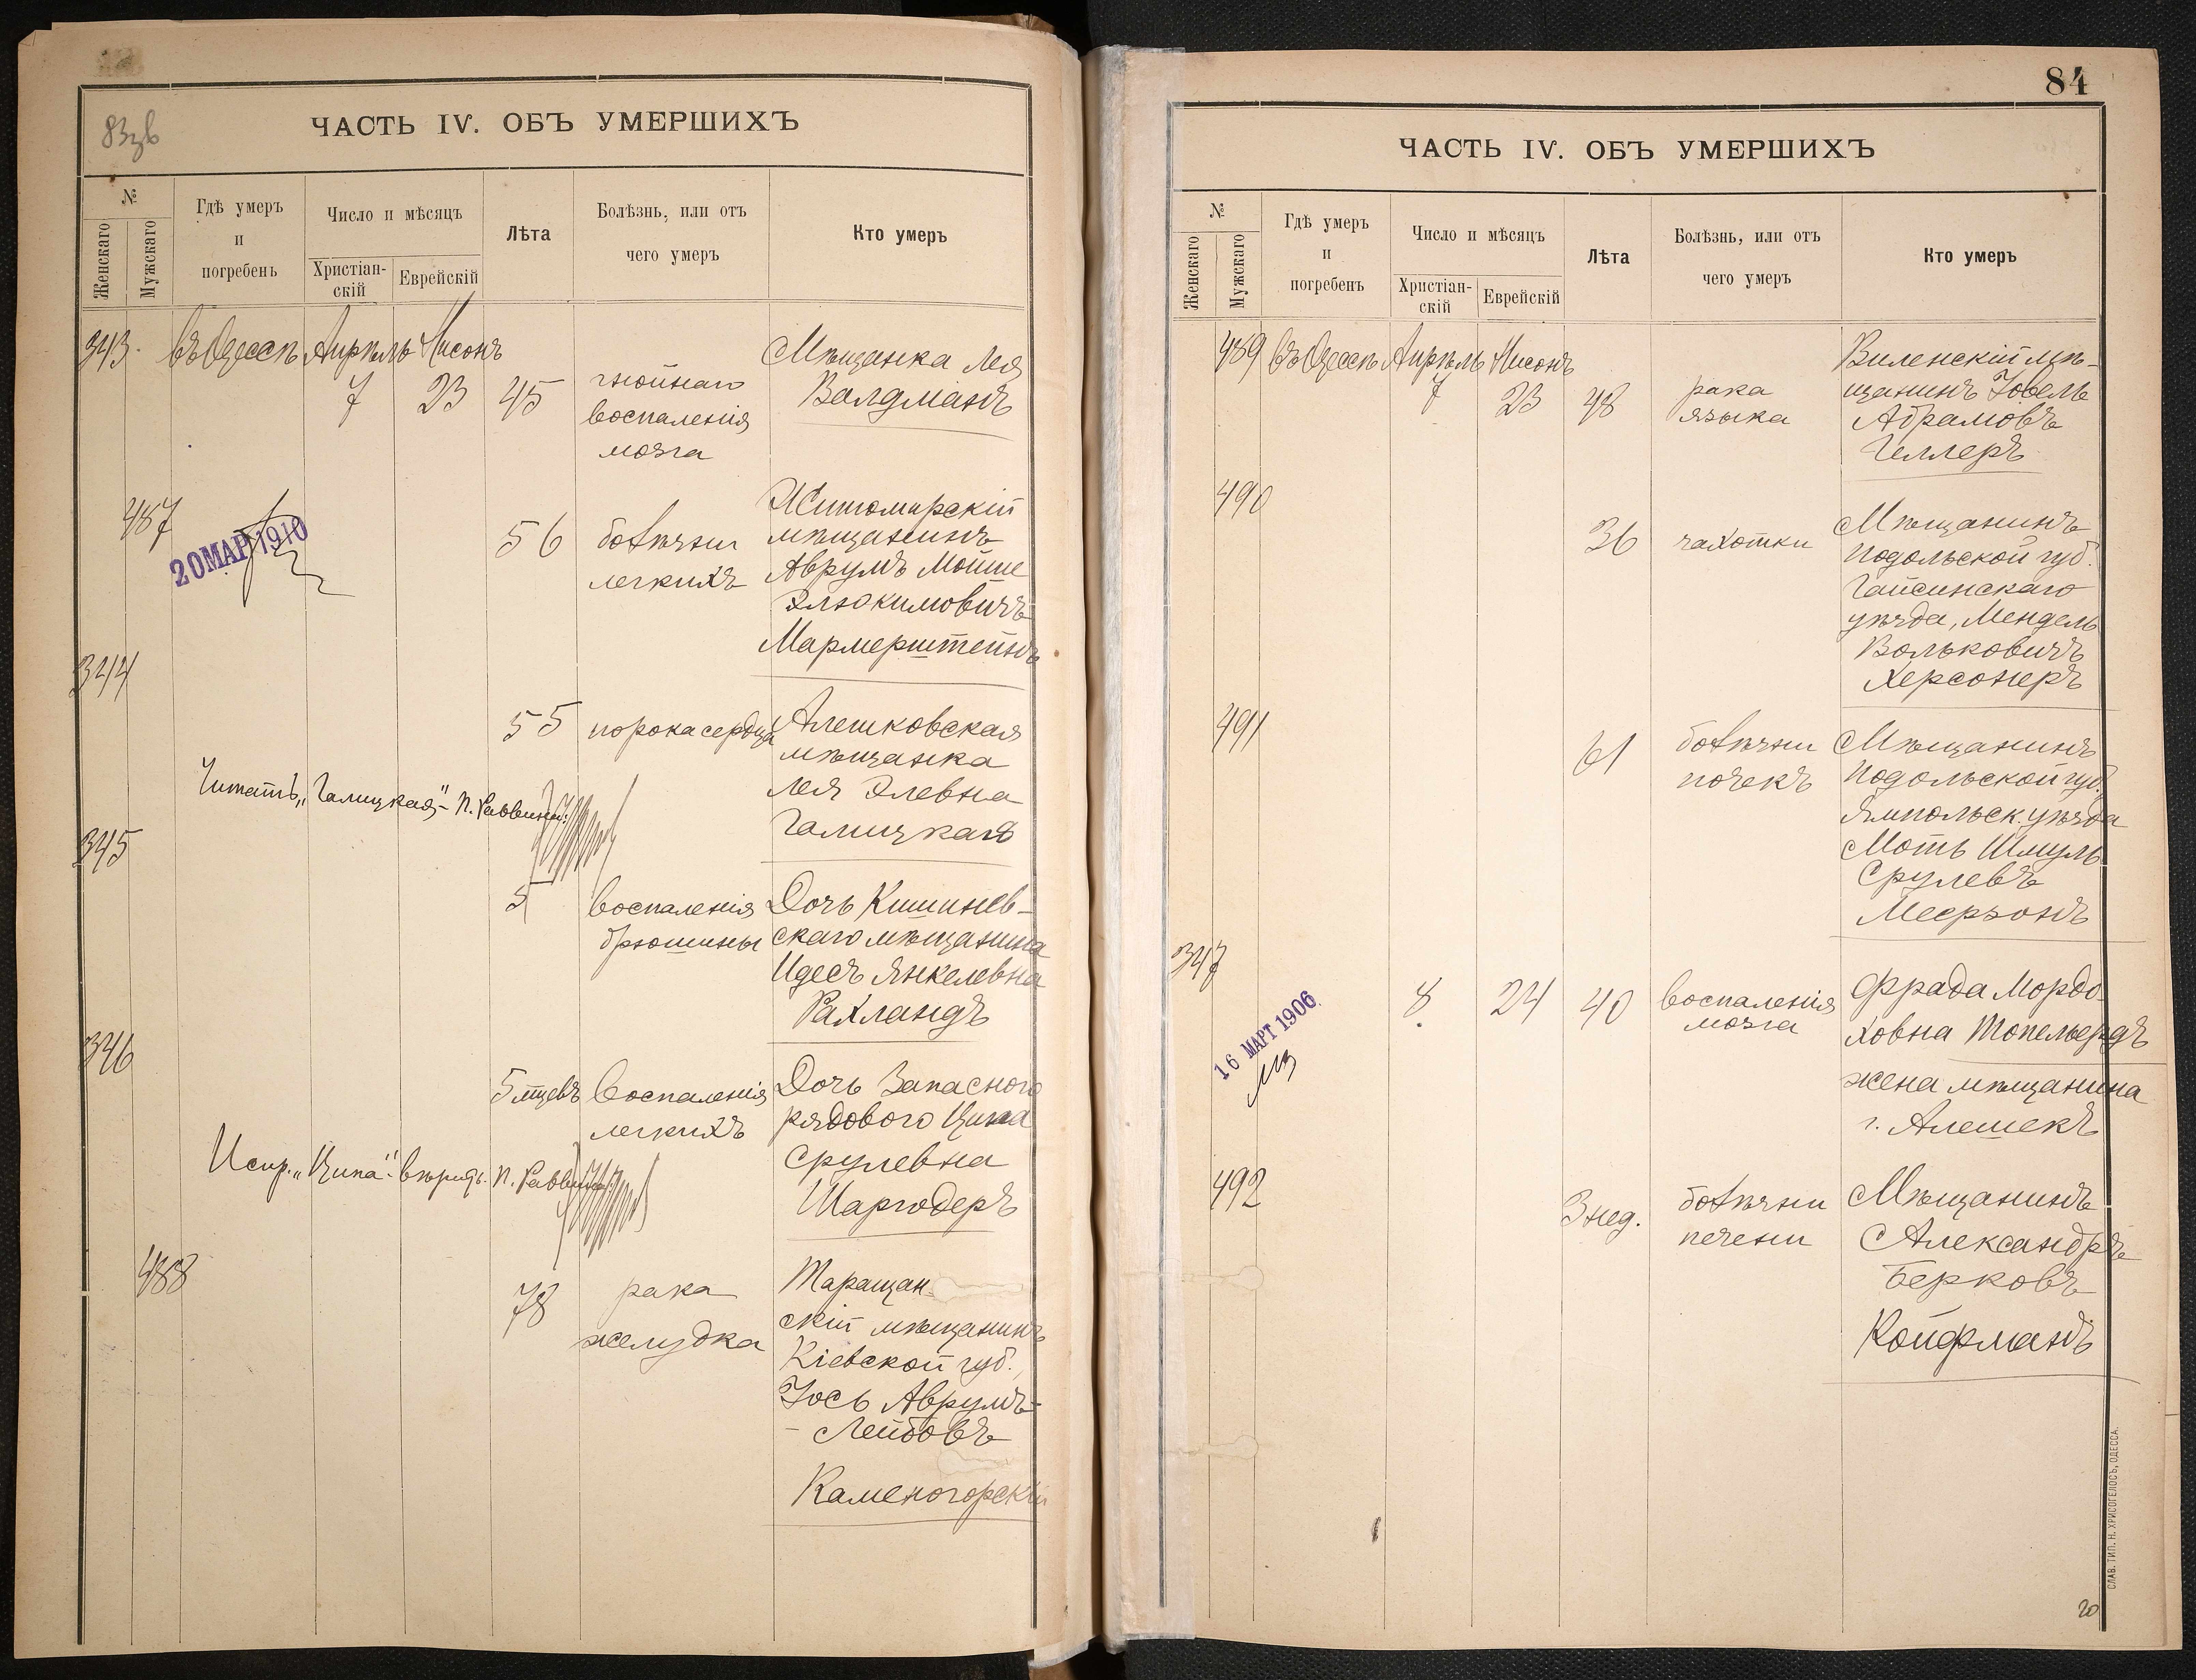 83зв
ЧАСТЬ IV. ОБЪ УМЕРШИХЪ
№
Женскаго
Мужскаго
Гдѣ умеръ
и
погребенъ
Число и мѣсяцъ
Христіан-
скій
Еврейскій
Лѣта
Болѣзнь, или отъ
чего умеръ
Кто умеръ
343. въ Одессѣ Апрѣль Нисонъ
7 23 45
гнойнаго
воспаленія
мозга
Мѣщанка Лея
Валдманъ
487
20 МАР 1910
56
болѣзни
легкихъ
Житомирскій
мѣщанинъ
Аврумъ Мойше
Элюкимовичъ
Мармерштейнъ
344
55 порока сердца
Алешковская
мѣщанка
Лея Элевна
Галицкая
Читать „Галицкая“ - П. Раввина:
345
5
воспаленія
брюшины
Дочь Кишинев-
скаго мѣщанина
Идесъ Янкелевна
Рахландъ
346
5 мцевъ
воспаленія
легкихъ
Дочь Запасного
рядового Ципа
Срулевна
Шаргодеръ
Испр. „Ципа“ - вѣрить. П. Раввина
488
78
рака
желудка
Таращан-
скій мѣщанинъ
Кіевской губ.,
Іось Аврумъ-
- Лейбовъ
Каменогорскій
84
ЧАСТЬ IV. ОБЪ УМЕРШИХЪ
№
Женскаго
Мужскаго
Гдѣ умеръ
и
погребенъ
Число и мѣсяцъ
Христіан-
скій
Еврейскій
Лѣта
Болѣзнь, или отъ
чего умеръ
Кто умеръ
489 въ Одессѣ Апрѣль Нисонъ
7 23 48
рака
языка
Виленскій мѣ-
щанинъ Іовель
Абрамовъ
Геллеръ
490
36 чахотки
Мѣщанинъ
Подольской губ.
Гайсинскаго
уѣзда, Мендель
Вольковичъ
Херсонеръ
491
61
болѣзни
почекъ
Мѣщанинъ
Подольской губ.,
Ямпольск. уѣзда
Моть Шмуль
Срулевъ
Месрзонъ
347
16 МАРТ 1906
8 24 40
воспаленія
мозга
Фрада Мордо-
ховна Топельбергъ
жена мѣщанина
г. Алешекъ
492
3 нед.
болѣзни
печени
Мѣщанинъ
Александръ
Берковъ
Койфманъ
СЛАВ. ТИП. Н. ХРИСОГЕЛОСЪ, ОДЕССА.
20